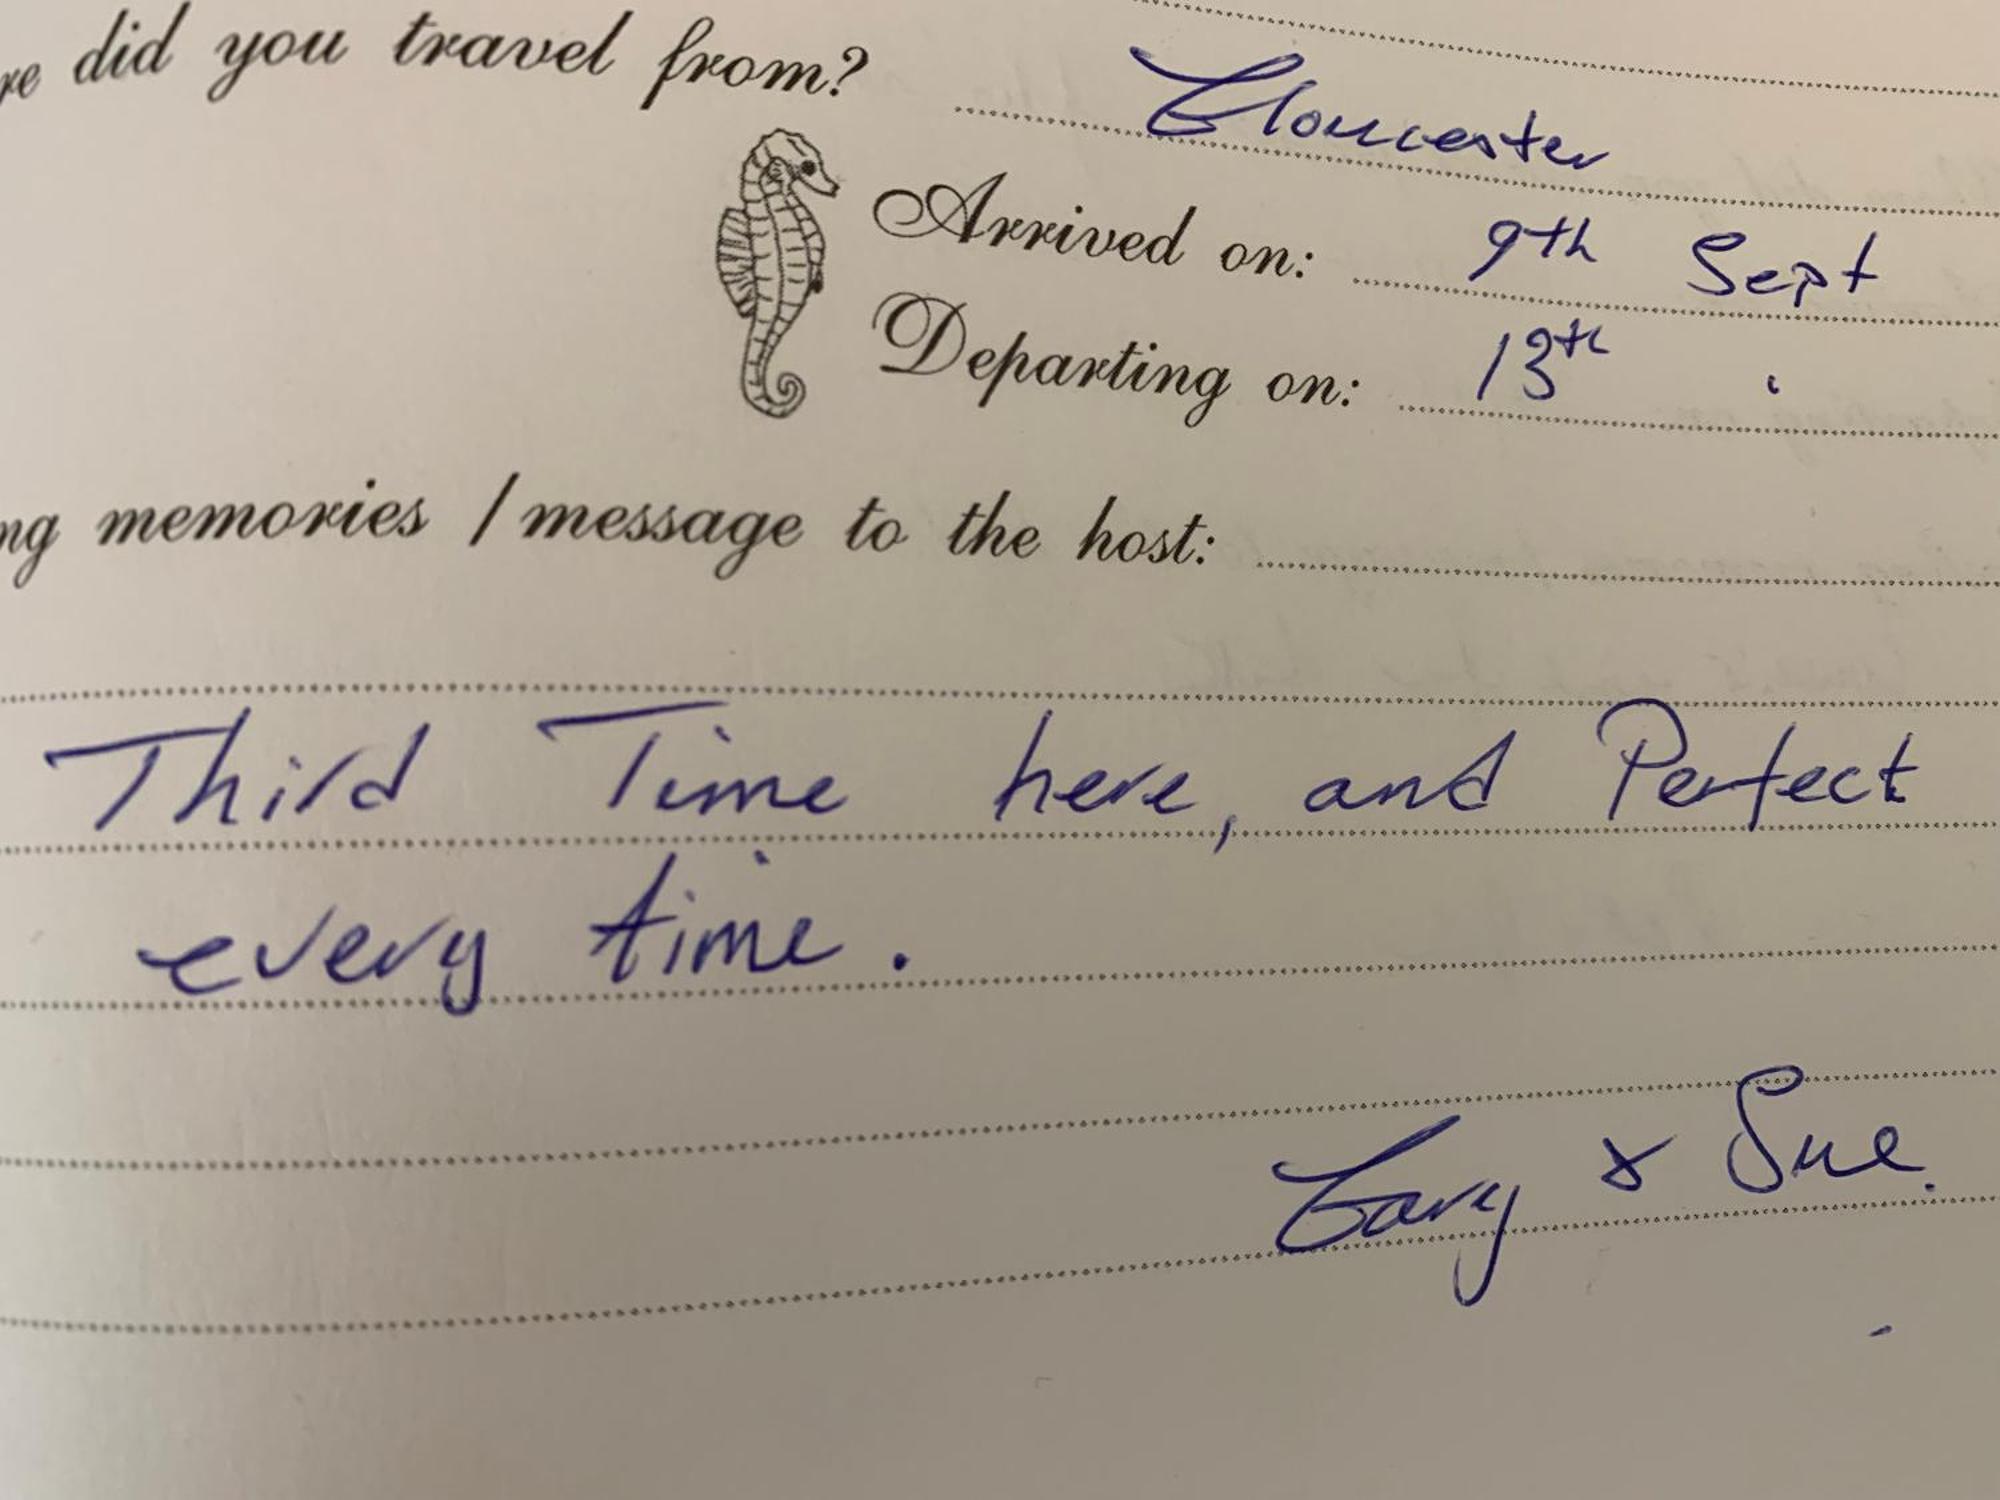 re did you travel from? Gloucester
Arrived on: 9th Sept
Departing on: 13th "
ng memories / message to the host:
Third Time here, and Perfect
every time.
Gary & Sue.